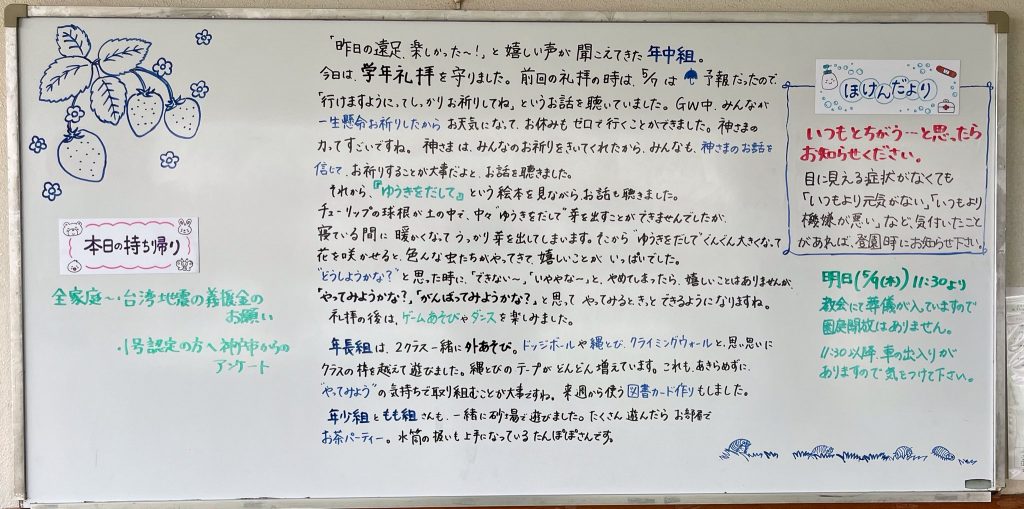 「昨日の遠足、楽しかった～！」と 嬉しい声が 聞こえてきた 年中組。
今日は、学年礼拝を守りました。前回の礼拝の時は、5/7は☂予報だったので、
「行けますように、ってしっかりお祈りしてね」というお話を聴いていました。GW中、みんなが
一生懸命お祈りしたから お天気になって、お休みも ゼロで行くことができました。神さまの
力ってすごいですね。神さまは、みんなのお祈りをきいてくれたから、みんなも、神さまのお話を
信じて、お祈りすることが大事だよと、お話を聴きました。
それから、『ゆうきをだして』という絵本を見ながらお話も聴きました。
チューリップの球根が土の中で、中々“ゆうきをだして”芽を出すことができませんでしたが、
寝ている間に 暖かくなって うっかり芽を出してしまいます。だから“ゆうきをだして”ぐんぐん大きくなって
花を咲かせると、色んな虫たちがやってきて、嬉しいことが いっぱいでした。
“どうしようかな？”と思った時に、「できない～」「いややな～」と、やめてしまったら、嬉しいことはありませんが、
「やってみようかな？」「がんばってみようかな？」と思って やってみるときっとできるようになりますね。
礼拝の後は、ゲームあそびやダンスを楽しみました。
年長組は、2クラス一緒に外あそび。ドッジボールや縄とび、クライミングウォールと、思い思いに
クラスの枠を越えて遊びました。縄とびのテープが どんどん増えています。これも、あきらめずに、
“やってみよう”の気持ちで取り組むことが大事ですね。来週から使う図書カード作りもしました。
年少組ともも組さんも、一緒に砂場で遊びました。たくさん遊んだら お部屋で
お茶パーティー。水筒の扱いも上手になっている たんぽぽさんです。
本日の持ち帰り
全家庭～・台湾地震の義援金の
お願い
・1号認定の方へ神戸市からの
アンケート
ほけんだより
いつもとちがう…と思ったら
お知らせください。
目に見える症状がなくても
「いつもより元気がない」「いつもより
機嫌が悪い」など、気付いたこと
があれば、登園時にお知らせ下さい。
明日(5/9(木)) 11:30より
教会にて葬儀が入っていますので
園庭開放はありません。
11:30以降、車の出入りが
ありますので気をつけて下さい。